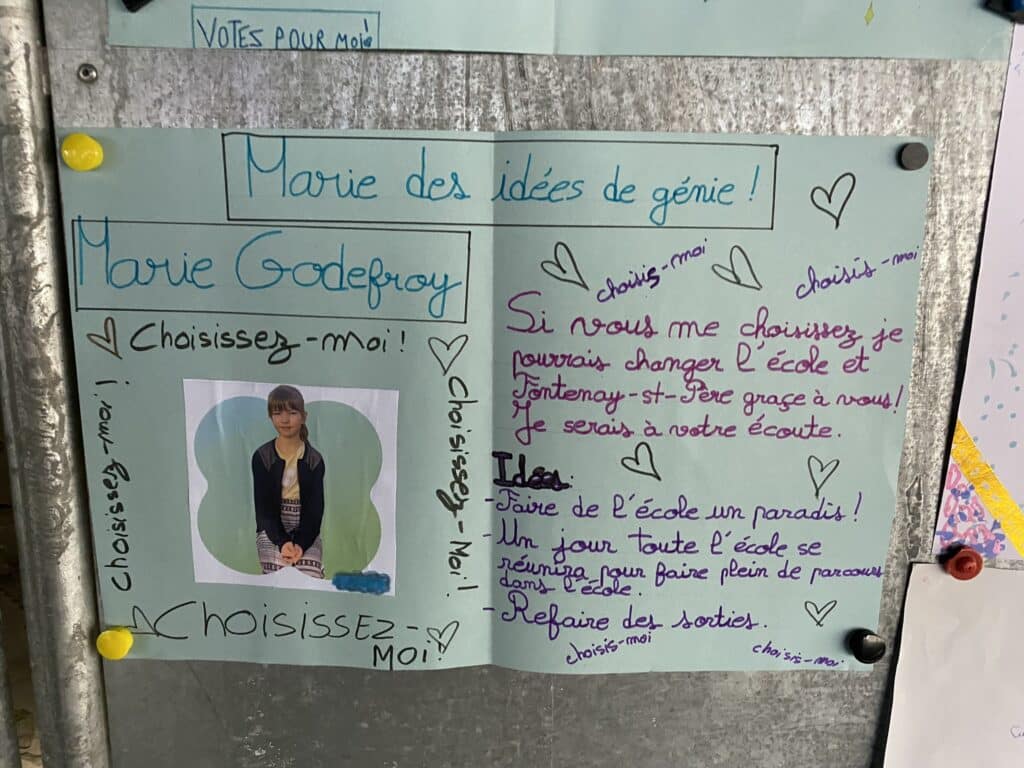 VOTES POUR MOI!
Marie des idées de génie !
Marie Godefroy
Choisissez-moi !
Choisissez-moi !
Choisissez-Moi !
CHOISISSEZ-
MOI !
choisis-moi
choisis-moi
Si vous me choisissez je
pourrais changer l'école et
Fontenay-st-Père graçe à vous!
Je serais à votre écoute.
Idées:
-Faire de l'école un paradis !
-Un jour toute l'école se
réunira pour faire plein de parcours
dans l'école.
-Refaire des sorties.
choisis-moi
choisis-moi